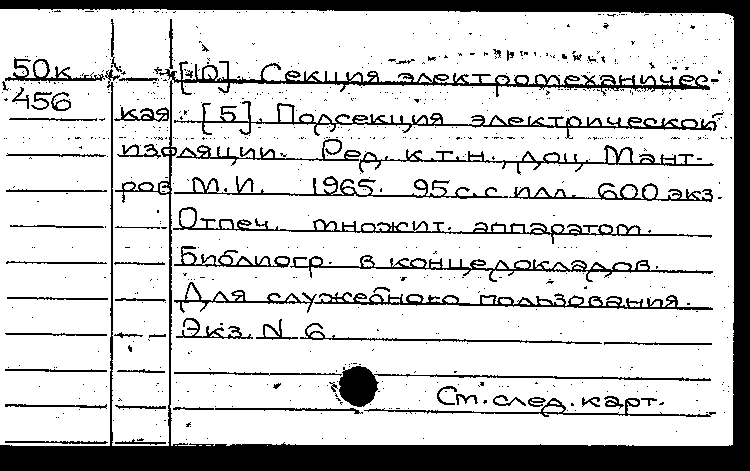 50к [10]. Секция электромеханичес-
456 кая. [5]. Подсекция электрической
изоляции. Ред. к.т.н., доц. Мант-
ров М.И. 1965. 95 с. с илл. 600 экз.
Отпеч. множит. аппаратом.
Библиогр. в конце докладов.
Для служебного пользования.
Экз. N 6.
См. след. карт.